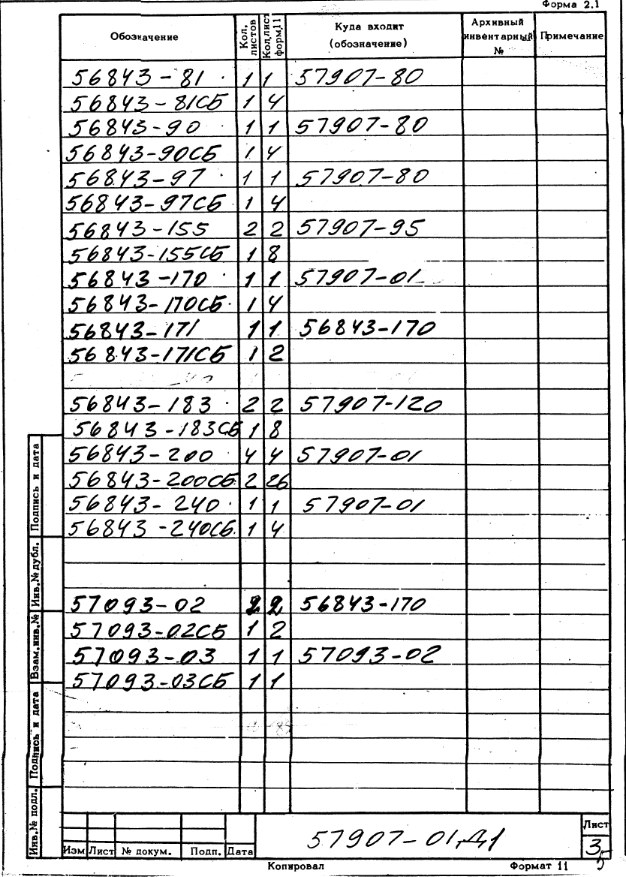 Форма 2.1
Обозначение Кол. листов Кол.лист форм.11 Куда входит (обозначение) Архивный инвентарный № Примечание
56843-81 1 1 57907-80
56843-81СБ 1 4
56843-90 1 1 57907-80
56843-90СБ 1 4
56843-97 1 1 57907-80
56843-97СБ 1 4
56843-155 2 2 57907-95
56843-155СБ 1 8
56843-170 1 1 57907-01
56843-170СБ 1 4
56843-171 1 1 56843-170
56843-171СБ 1 2
56843-183 2 2 57907-120
56843-183СБ 1 8
56843-200 4 4 57907-01
56843-200СБ 2 26
56843-240 1 1 57907-01
56843-240СБ 1 4
57093-02 2 2 56843-170
57093-02СБ 1 2
57093-03 1 1 57093-02
57093-03СБ 1 1
Инв.№ подл. Подпись и дата Взам.инв.№ Инв.№ дубл. Подпись и дата
57907-01,Д1
Лист
3
5
Изм Лист № докум. Подп. Дата
Копировал Формат 11